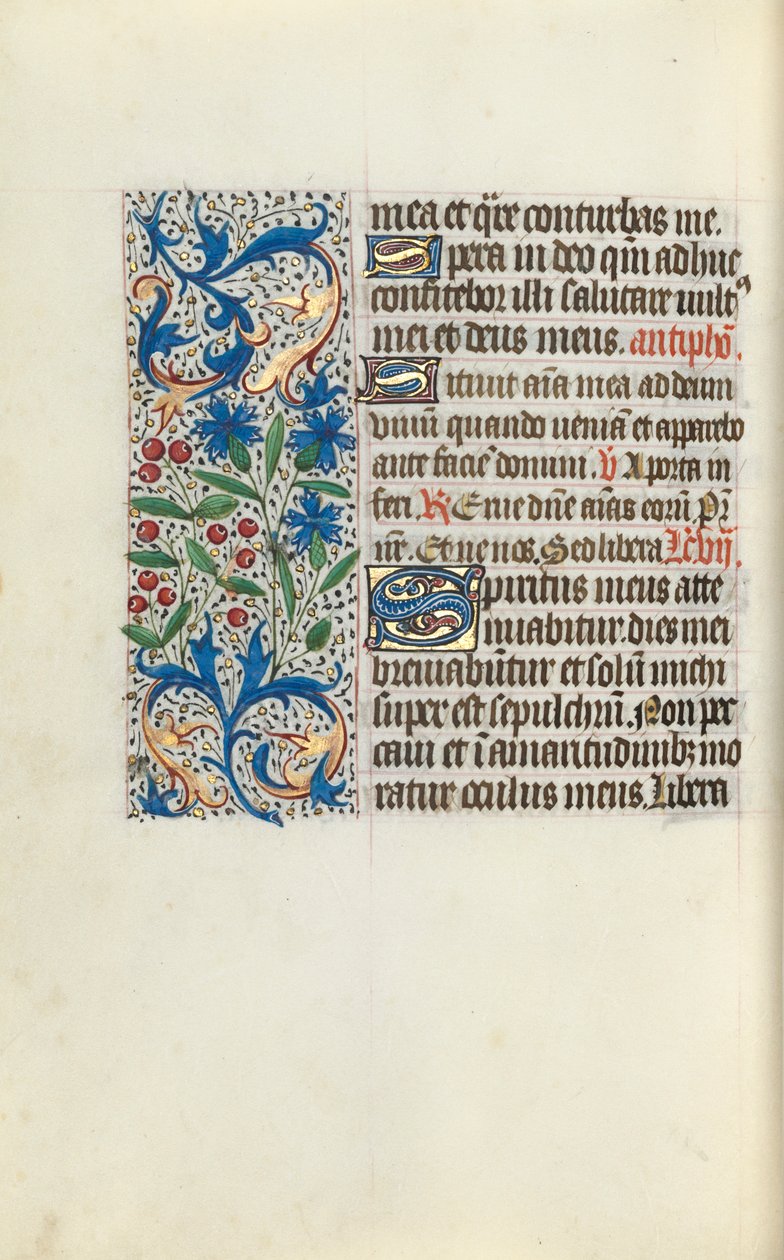 mea et q̄re conturbas me.
Spera in deo qm̄ adhuc
confitebor illi salutare vultꝰ
mei et deus meus. antiphō.
Sitiuit aīa mea ad deum
viuū quando ueniā et apparebo
ante facie᷒ domini. V A porta in
feri. R Erue dn̄e aīas eorū. Pr̄
nr̄. Et ne nos. Sed libera Lc̄ vij.
Spiritus meus atte
nuabitur. dies mei
breuiabūtur et solū michi
super est sepulchrū. Non pec
caui et ī amaritudinibꝫ mo
ratur oculus meus. Libera